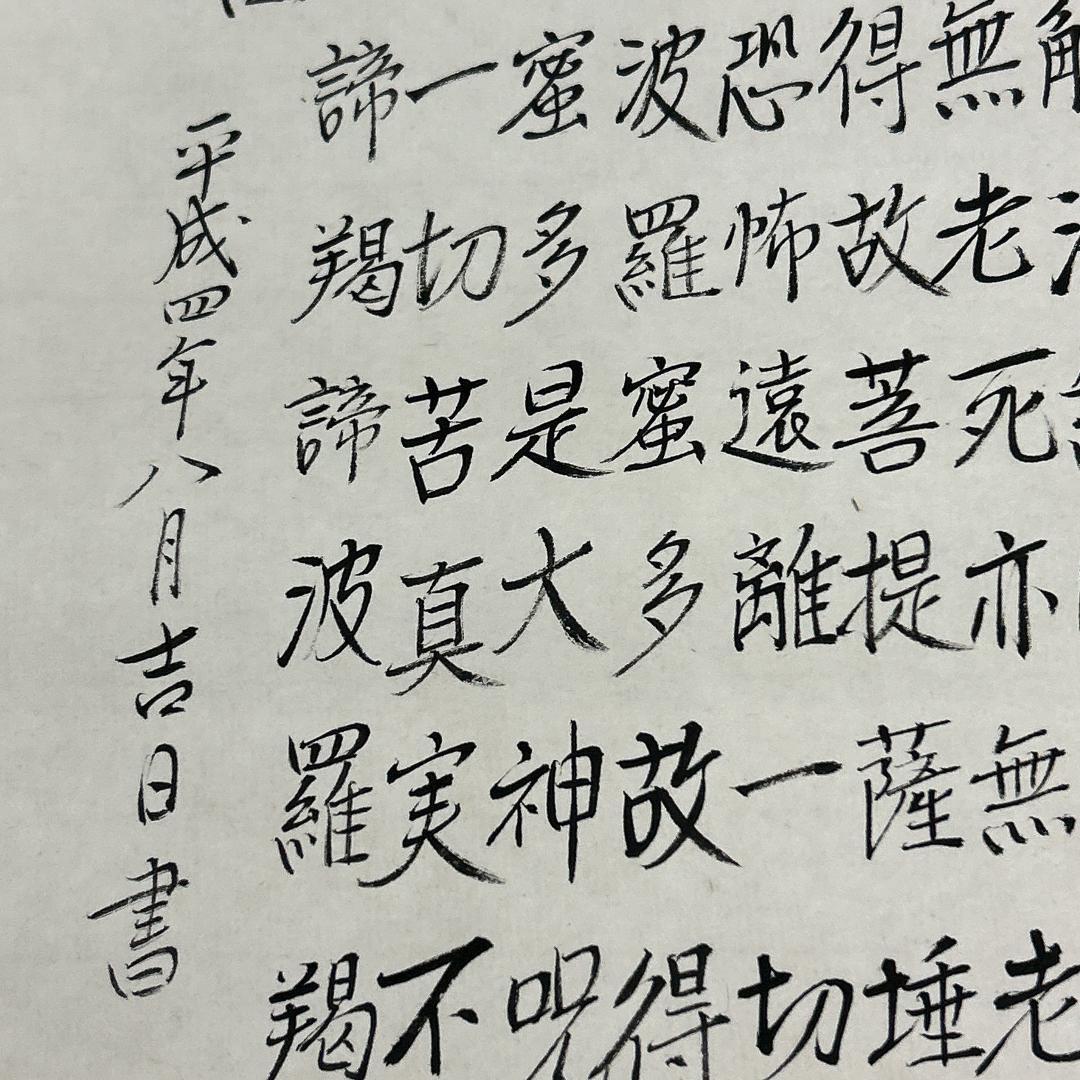 無老死亦無老
得故菩提薩埵
恐怖遠離一切
波羅蜜多故得
蜜多是大神呪
一切苦真実不
諦羯諦波羅羯
平成四年八月吉日書